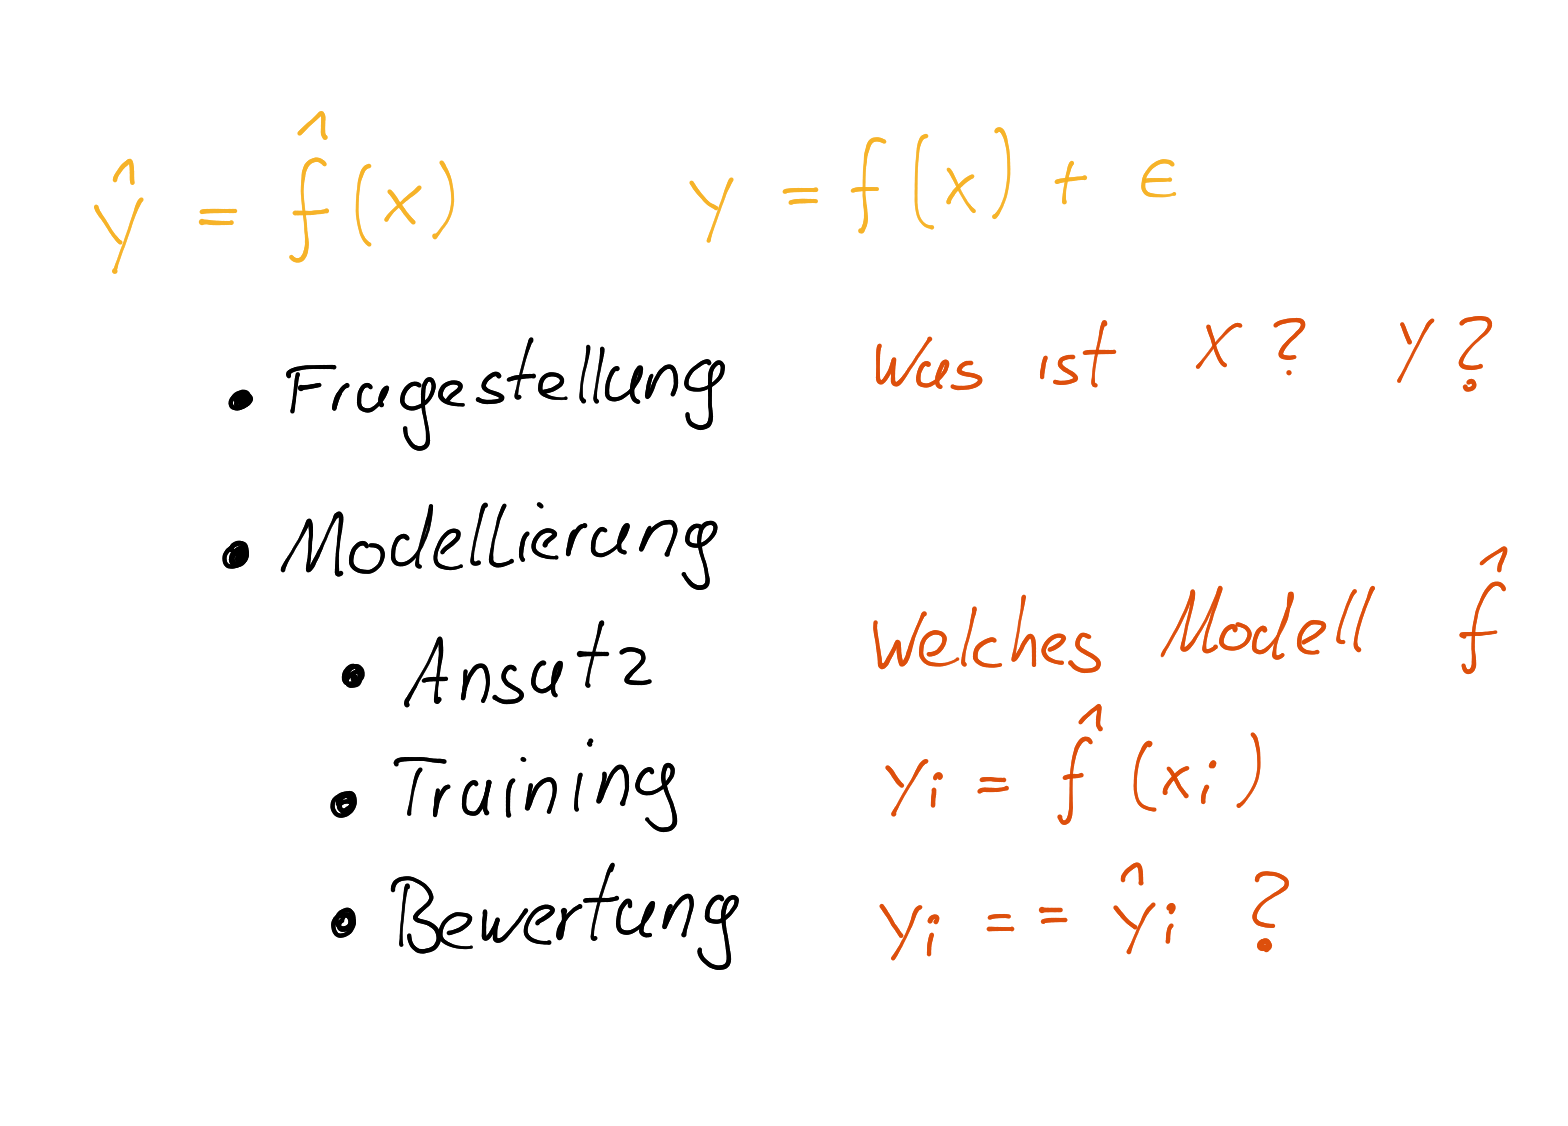 ŷ = f̂(x) y = f(x) + ϵ
• Fragestellung Was ist X? Y?
• Modellierung
• Ansatz Welches Modell f̂
• Training yᵢ = f̂(xᵢ)
• Bewertung yᵢ == ŷᵢ ?